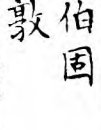 伯固
敦